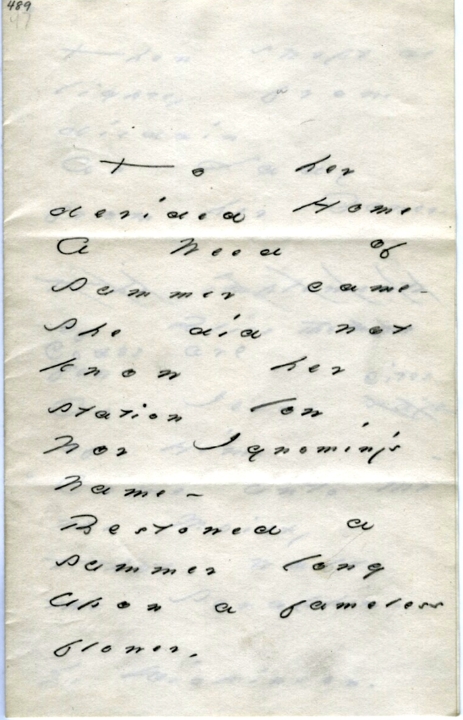 489
47
To her
derided Home
A Weed of
Summer came -
She did not
know her
station low
Nor Ignominy's
Name -
Bestowed a
Summer long
Upon a fameless
flower.